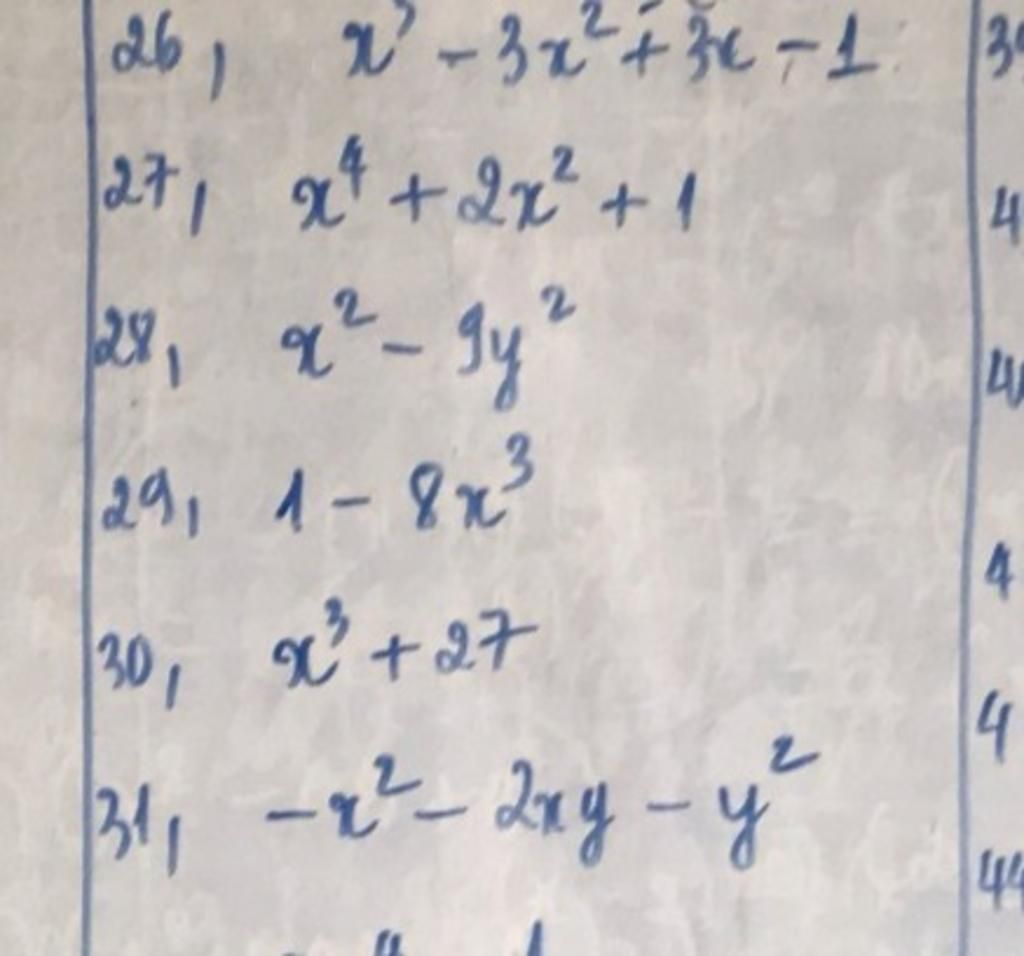 26, x³ - 3x² + 3x - 1
27, x⁴ + 2x² + 1
28, x² - 9y²
29, 1 - 8x³
30, x³ + 27
31, -x² - 2xy - y²